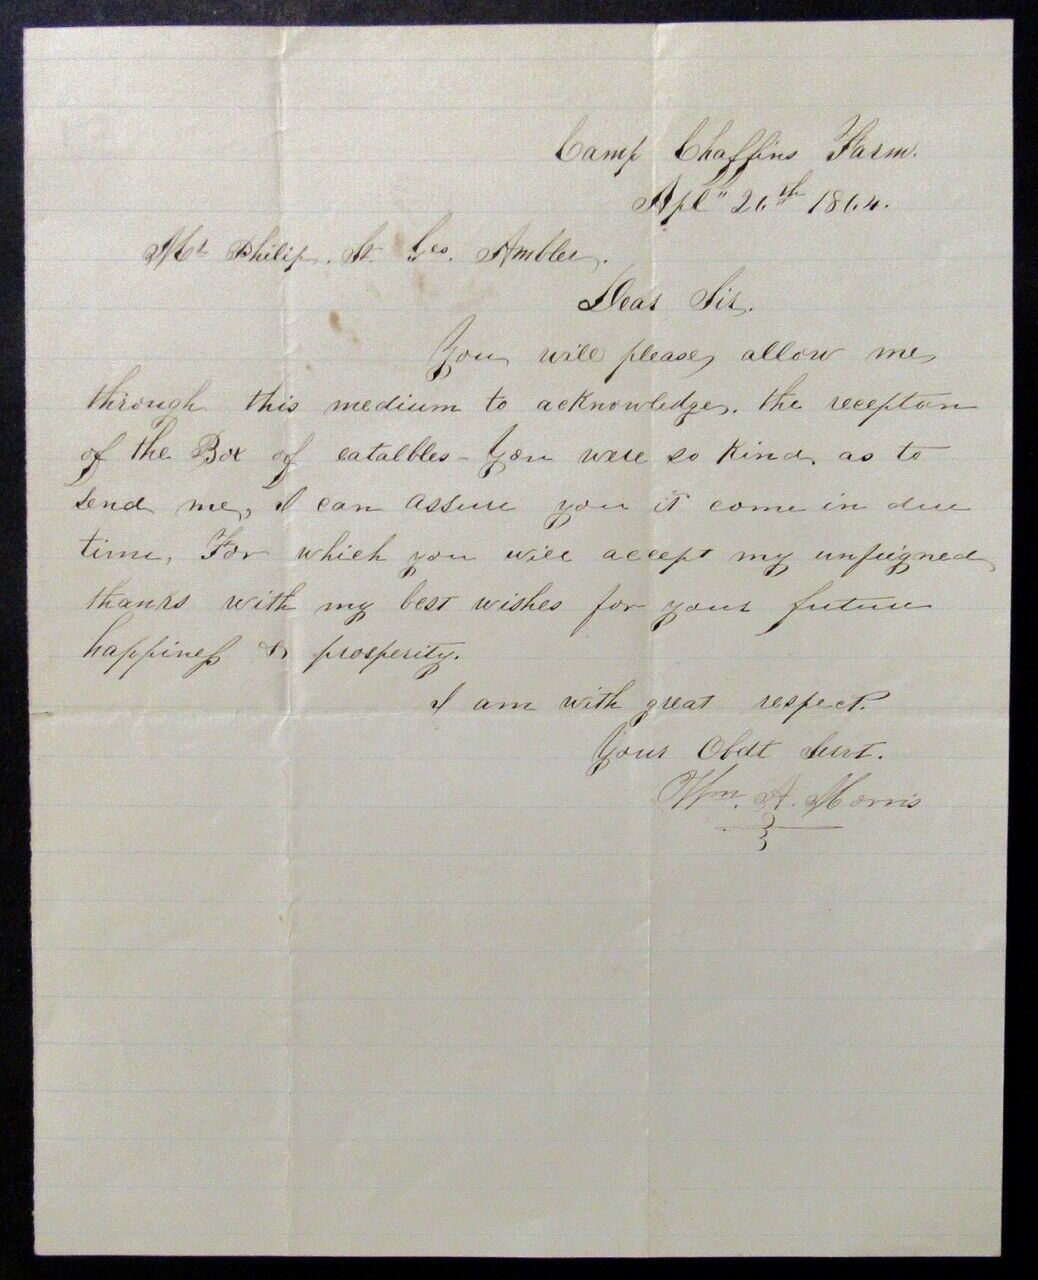 Camp Chaffins Farm.
Apl" 26th 1864.
Mr Philip. St. Geo. Ambler.
Dear Sir.
You will please, allow me,
through this medium to acknowledge, the reception
of the Box of eatalbles - You were so kind, as to
send me, I can assure you it come in due
time, For which you will accept my unfeigned
thanks with my best wishes for your future
happiness & prosperity.
I am with great respect.
Your Obdt Survt.
Wm. A. Morris